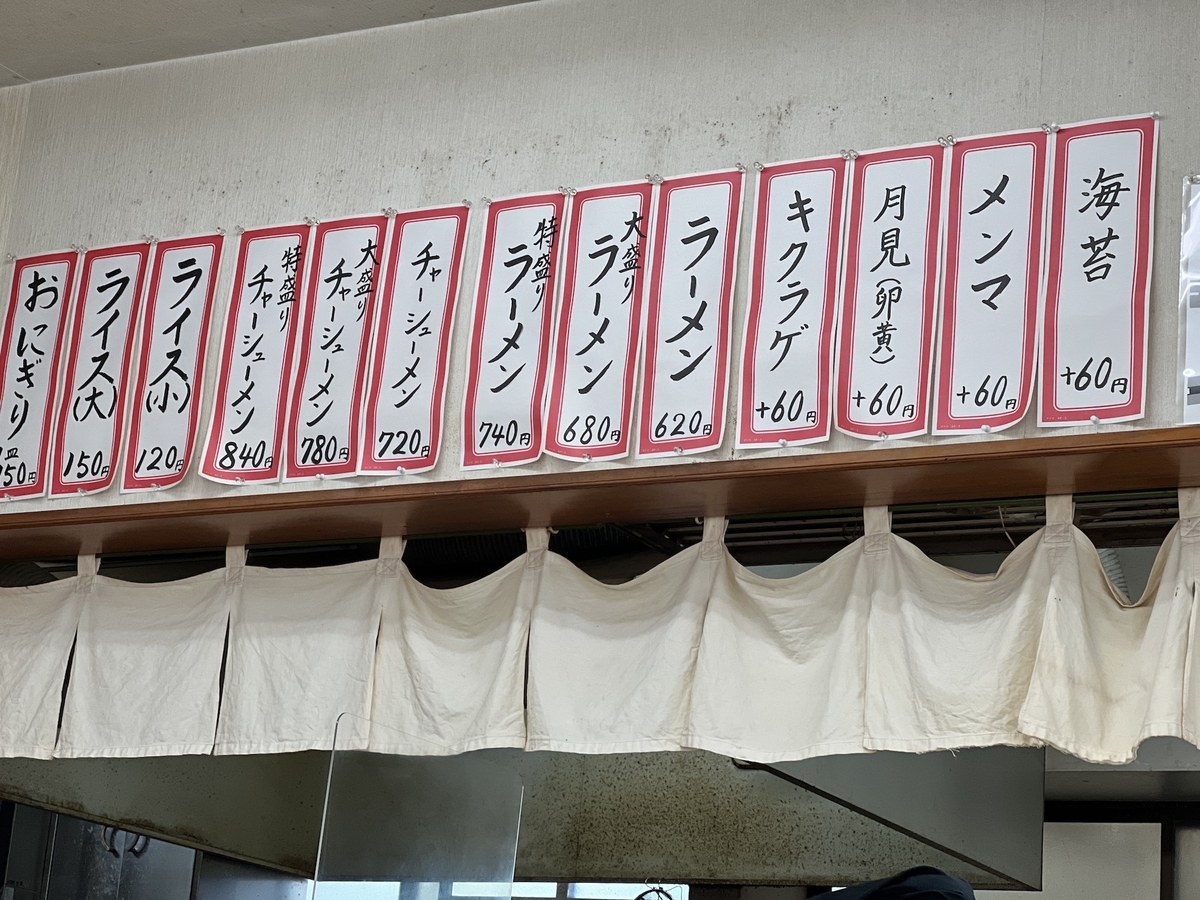 海苔
+60円
メンマ
+60円
月見(卵黄)
+60円
キクラゲ
+60円
ラーメン
620円
大盛り
ラーメン
680円
特盛り
ラーメン
740円
チャーシューメン
720円
大盛り
チャーシューメン
780円
特盛り
チャーシューメン
840円
ライス(小)
120円
ライス(大)
150円
おにぎり
150円